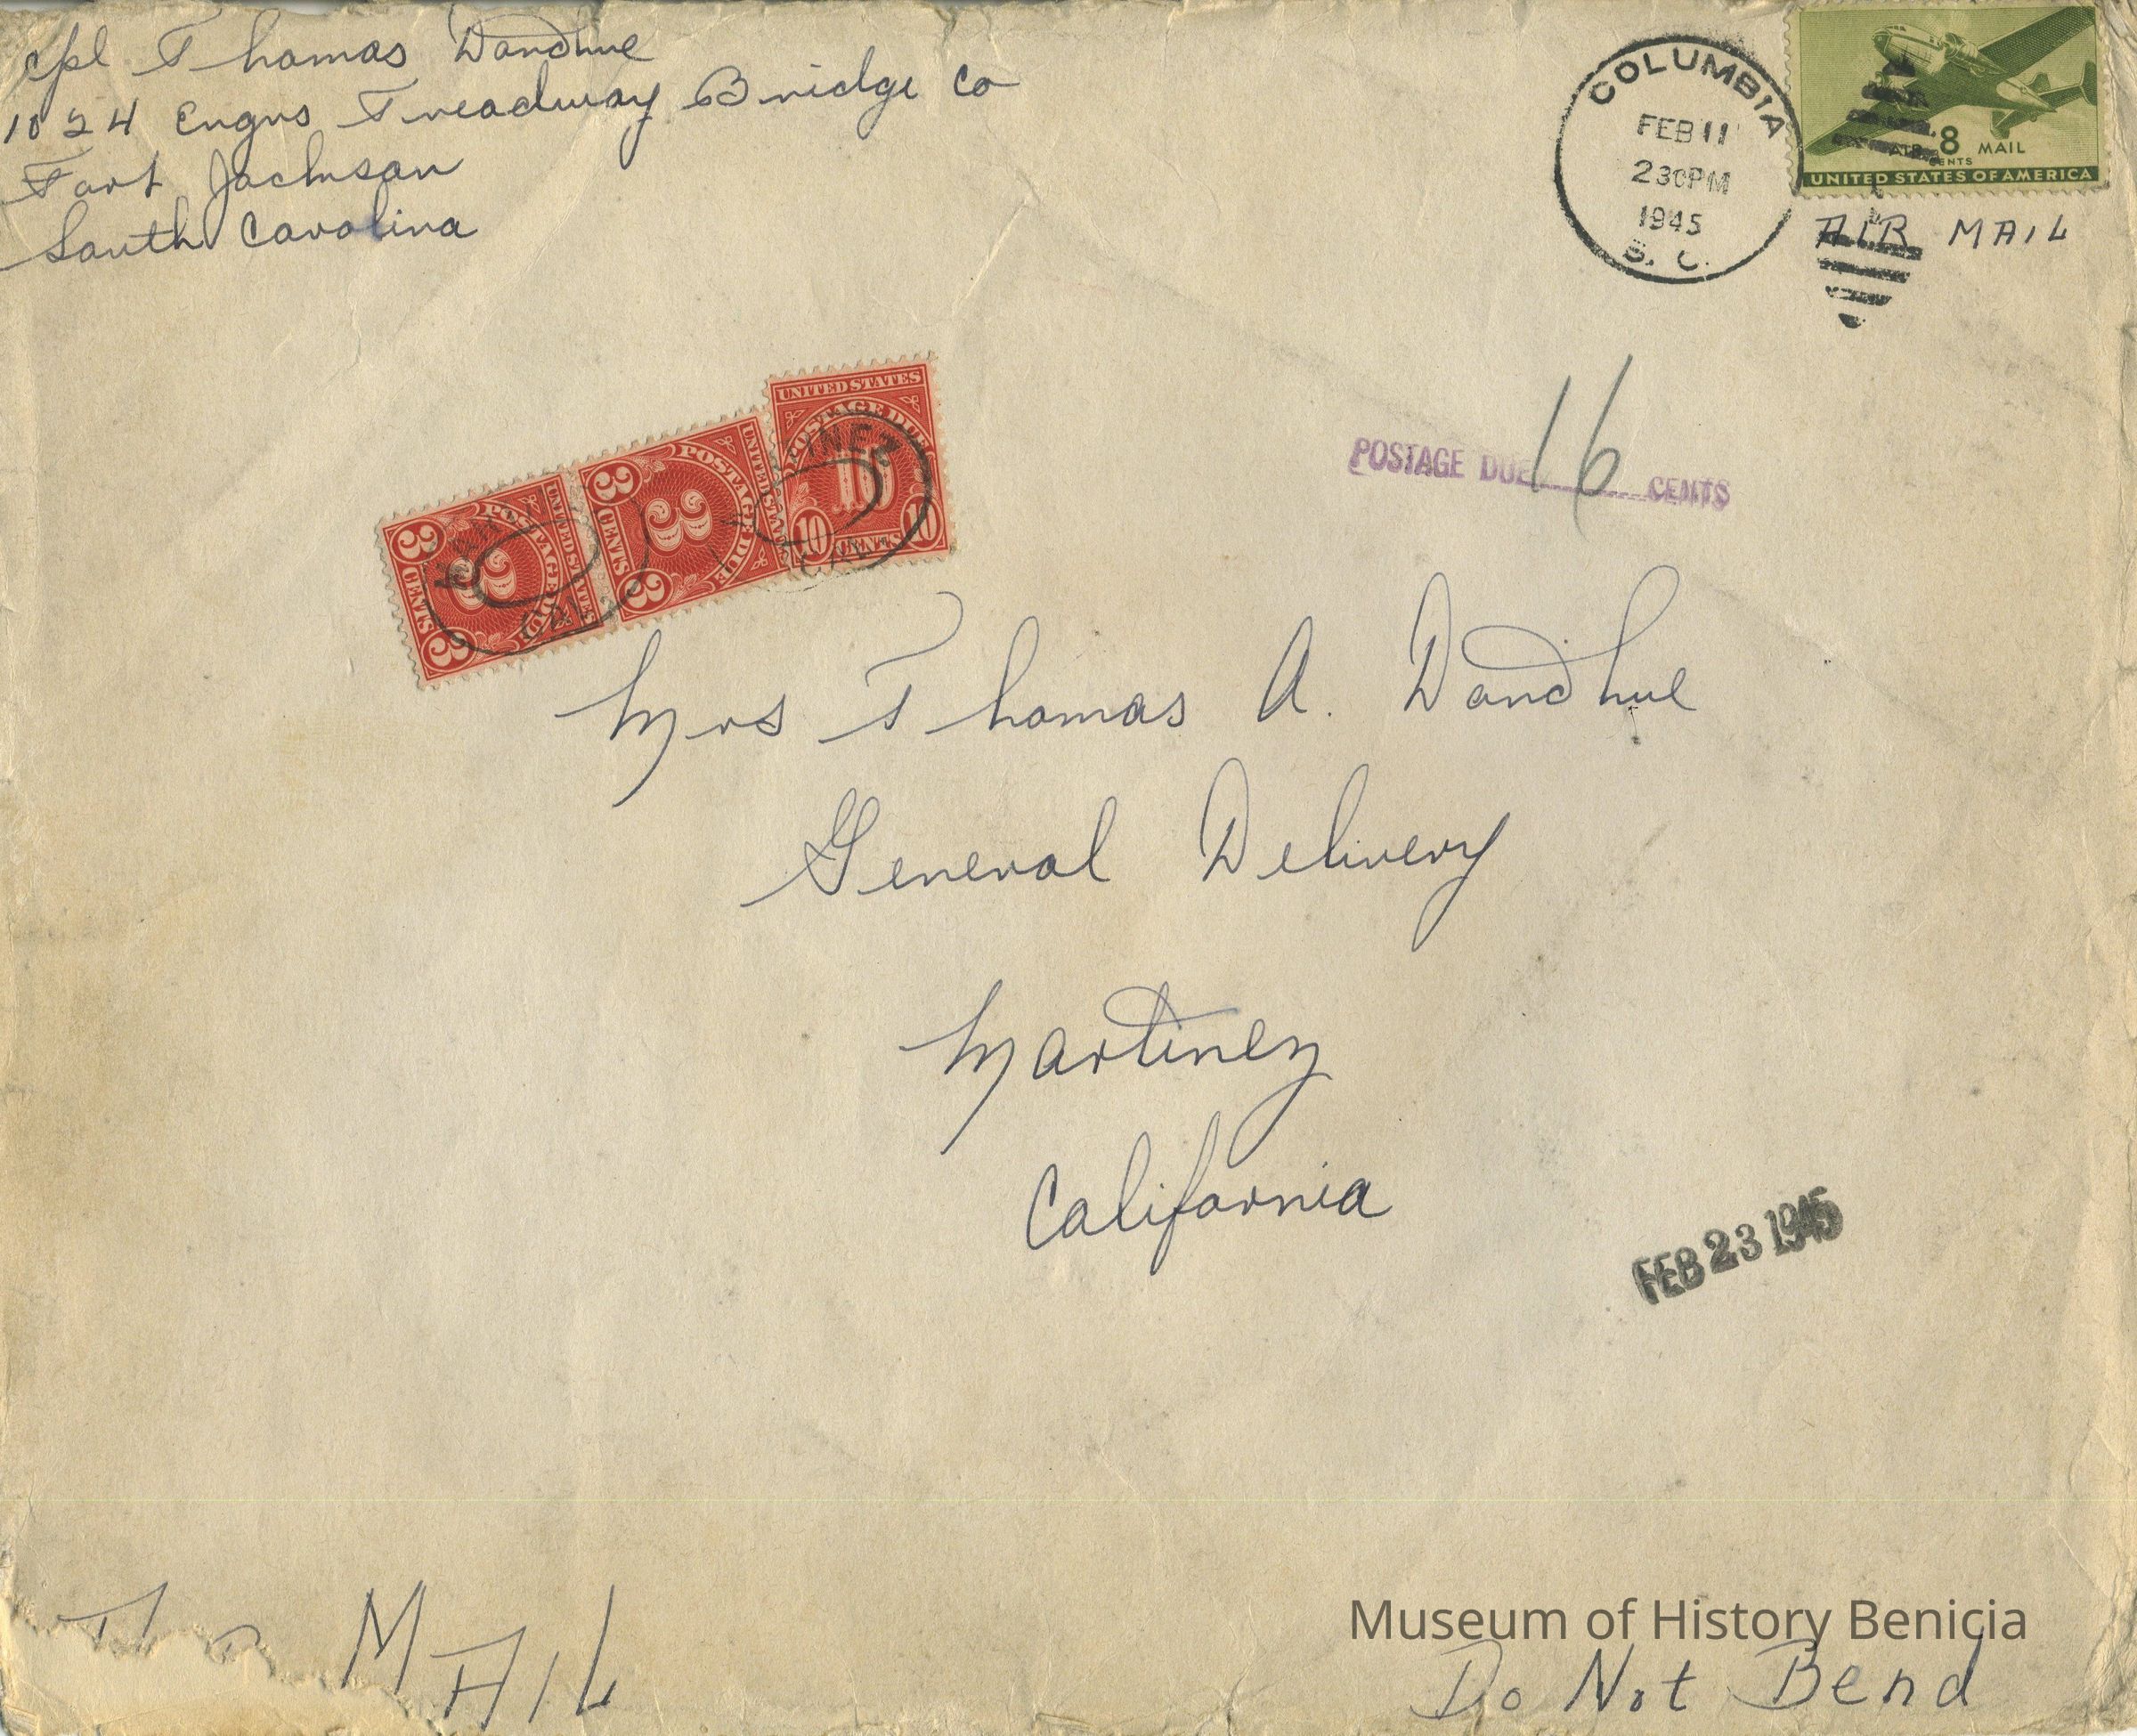 Cpl Thomas Dandhue
1024 Engrs Treadway Bridge Co
Fort Jackson
South Carolina
COLUMBIA
FEB 11
230PM
1945
S. C.
AIR 8 MAIL
CENTS
UNITED STATES OF AMERICA
AIR MAIL
UNITED STATES
POSTAGE DUE
10
10 CENTS 10
UNITED STATES
POSTAGE DUE
3
3 CENTS 3
UNITED STATES
POSTAGE DUE
3
3 CENTS 3
CAL
POSTAGE DUE 16 CENTS
Mrs Thomas A. Dandhue
General Delivery
Martinez
California
FEB 23 1945
MAIL
Museum of History Benicia
Do Not Bend